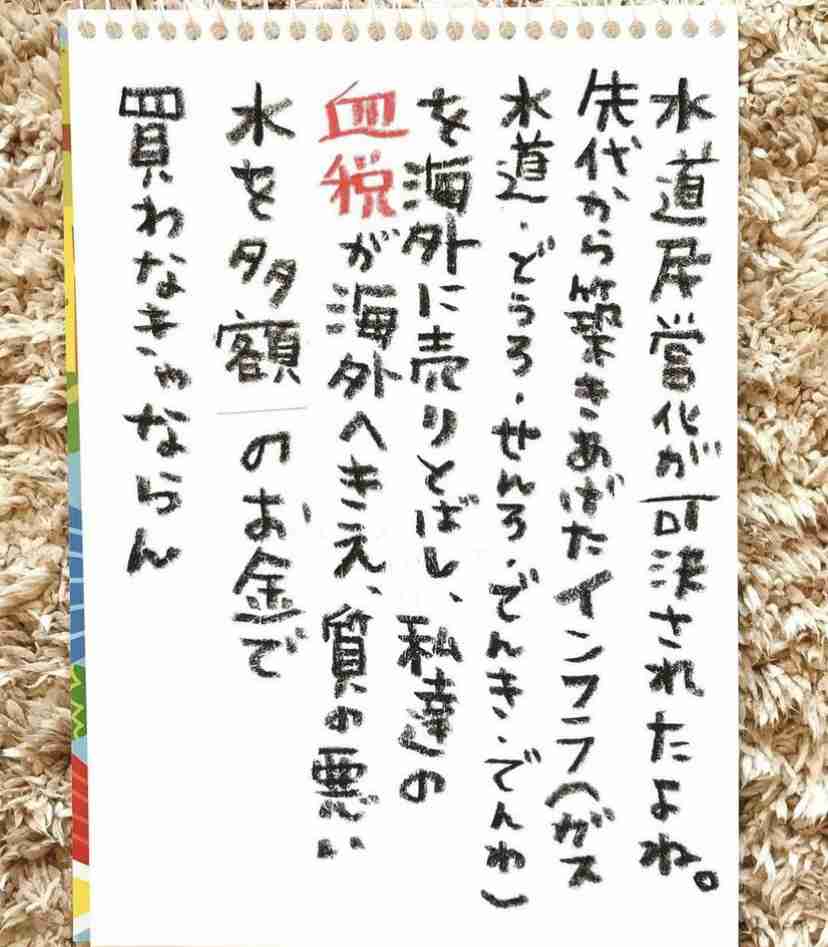 水道民営化が可決されたよね。
先代から築きあげたインフラ(ガス
水道・どうろ・せんろ・でんき・でんわ)
を海外に売りとばし、私達の
血税が海外へきえ、質の悪い
水を多額のお金で
買わなきゃならん